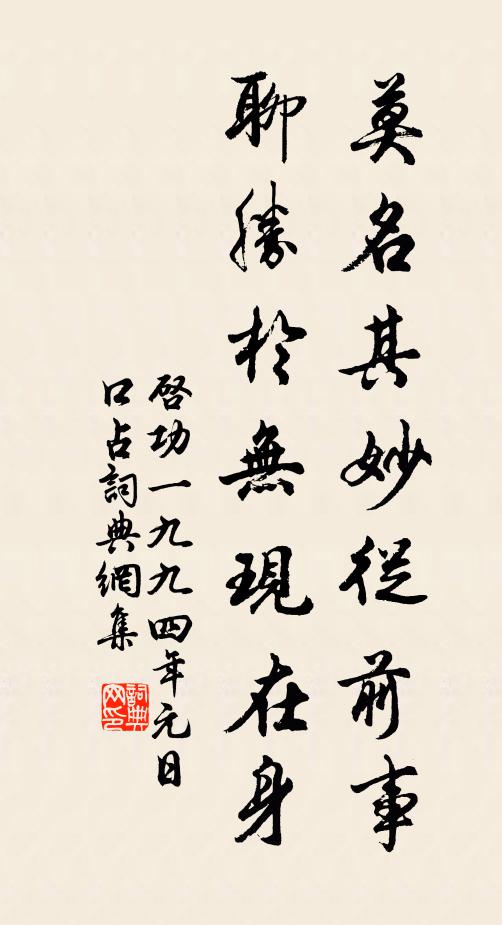 莫名其妙從前事
聊勝於無現在身
啓功一九九四年元日
口占詞典網集
詞典
网印